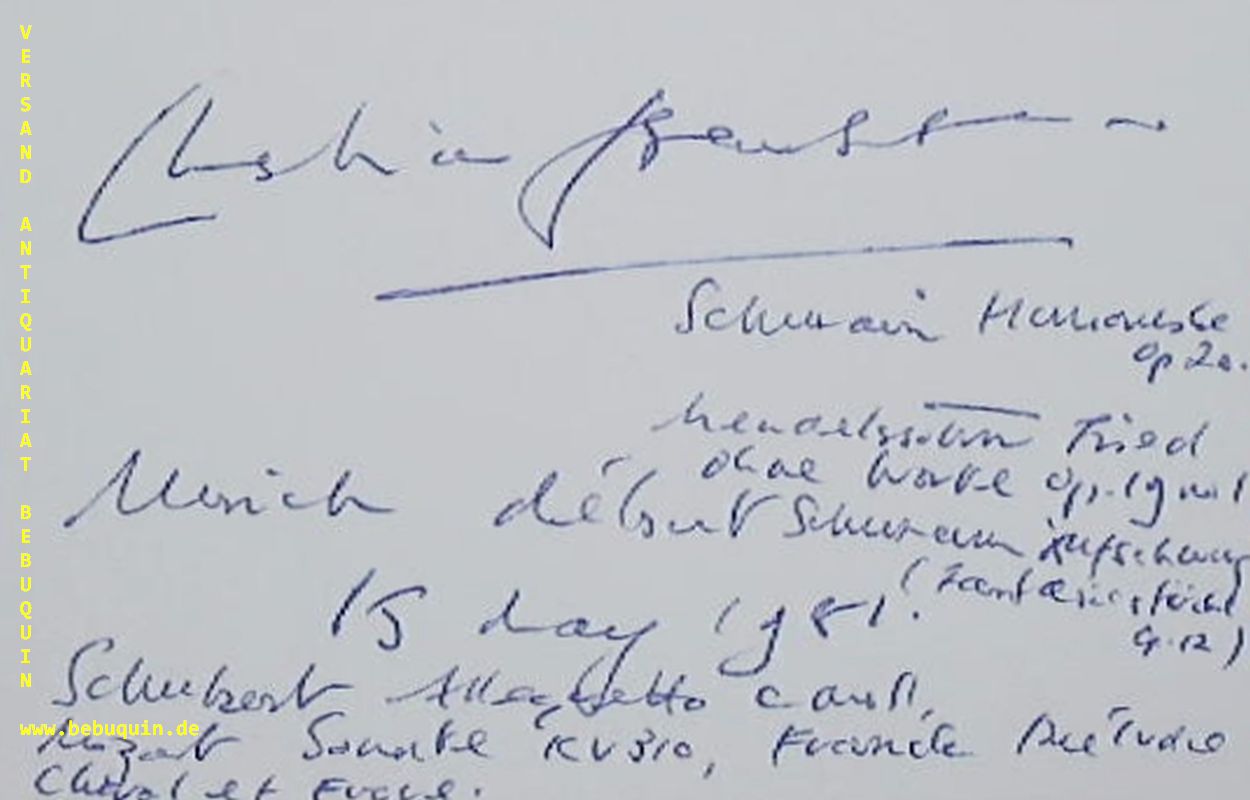 VERSAND ANTIQUARIAT BEBUQUIN
Schumann Humoreske
Op 20.
Mendelssohn Lied
ohne Worte Op. 19 no 1
Munich début Schumann Aufschwung
(Fantasiestücke
15 May 1981.
op. 12)
Schubert Allegretto c moll,
www.bebuquin.de
Mozart Sonate KV 310, Franck Prélude
Choral et Fugue.